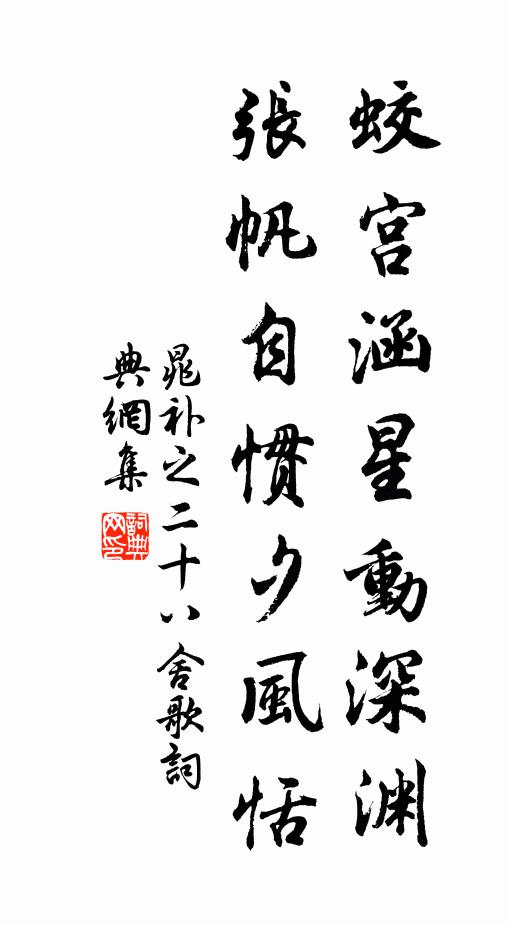 蛟宫涵星動深渊
張帆自慣夕風恬
晁补之二十八舍歌詞
典網集
詞典网印